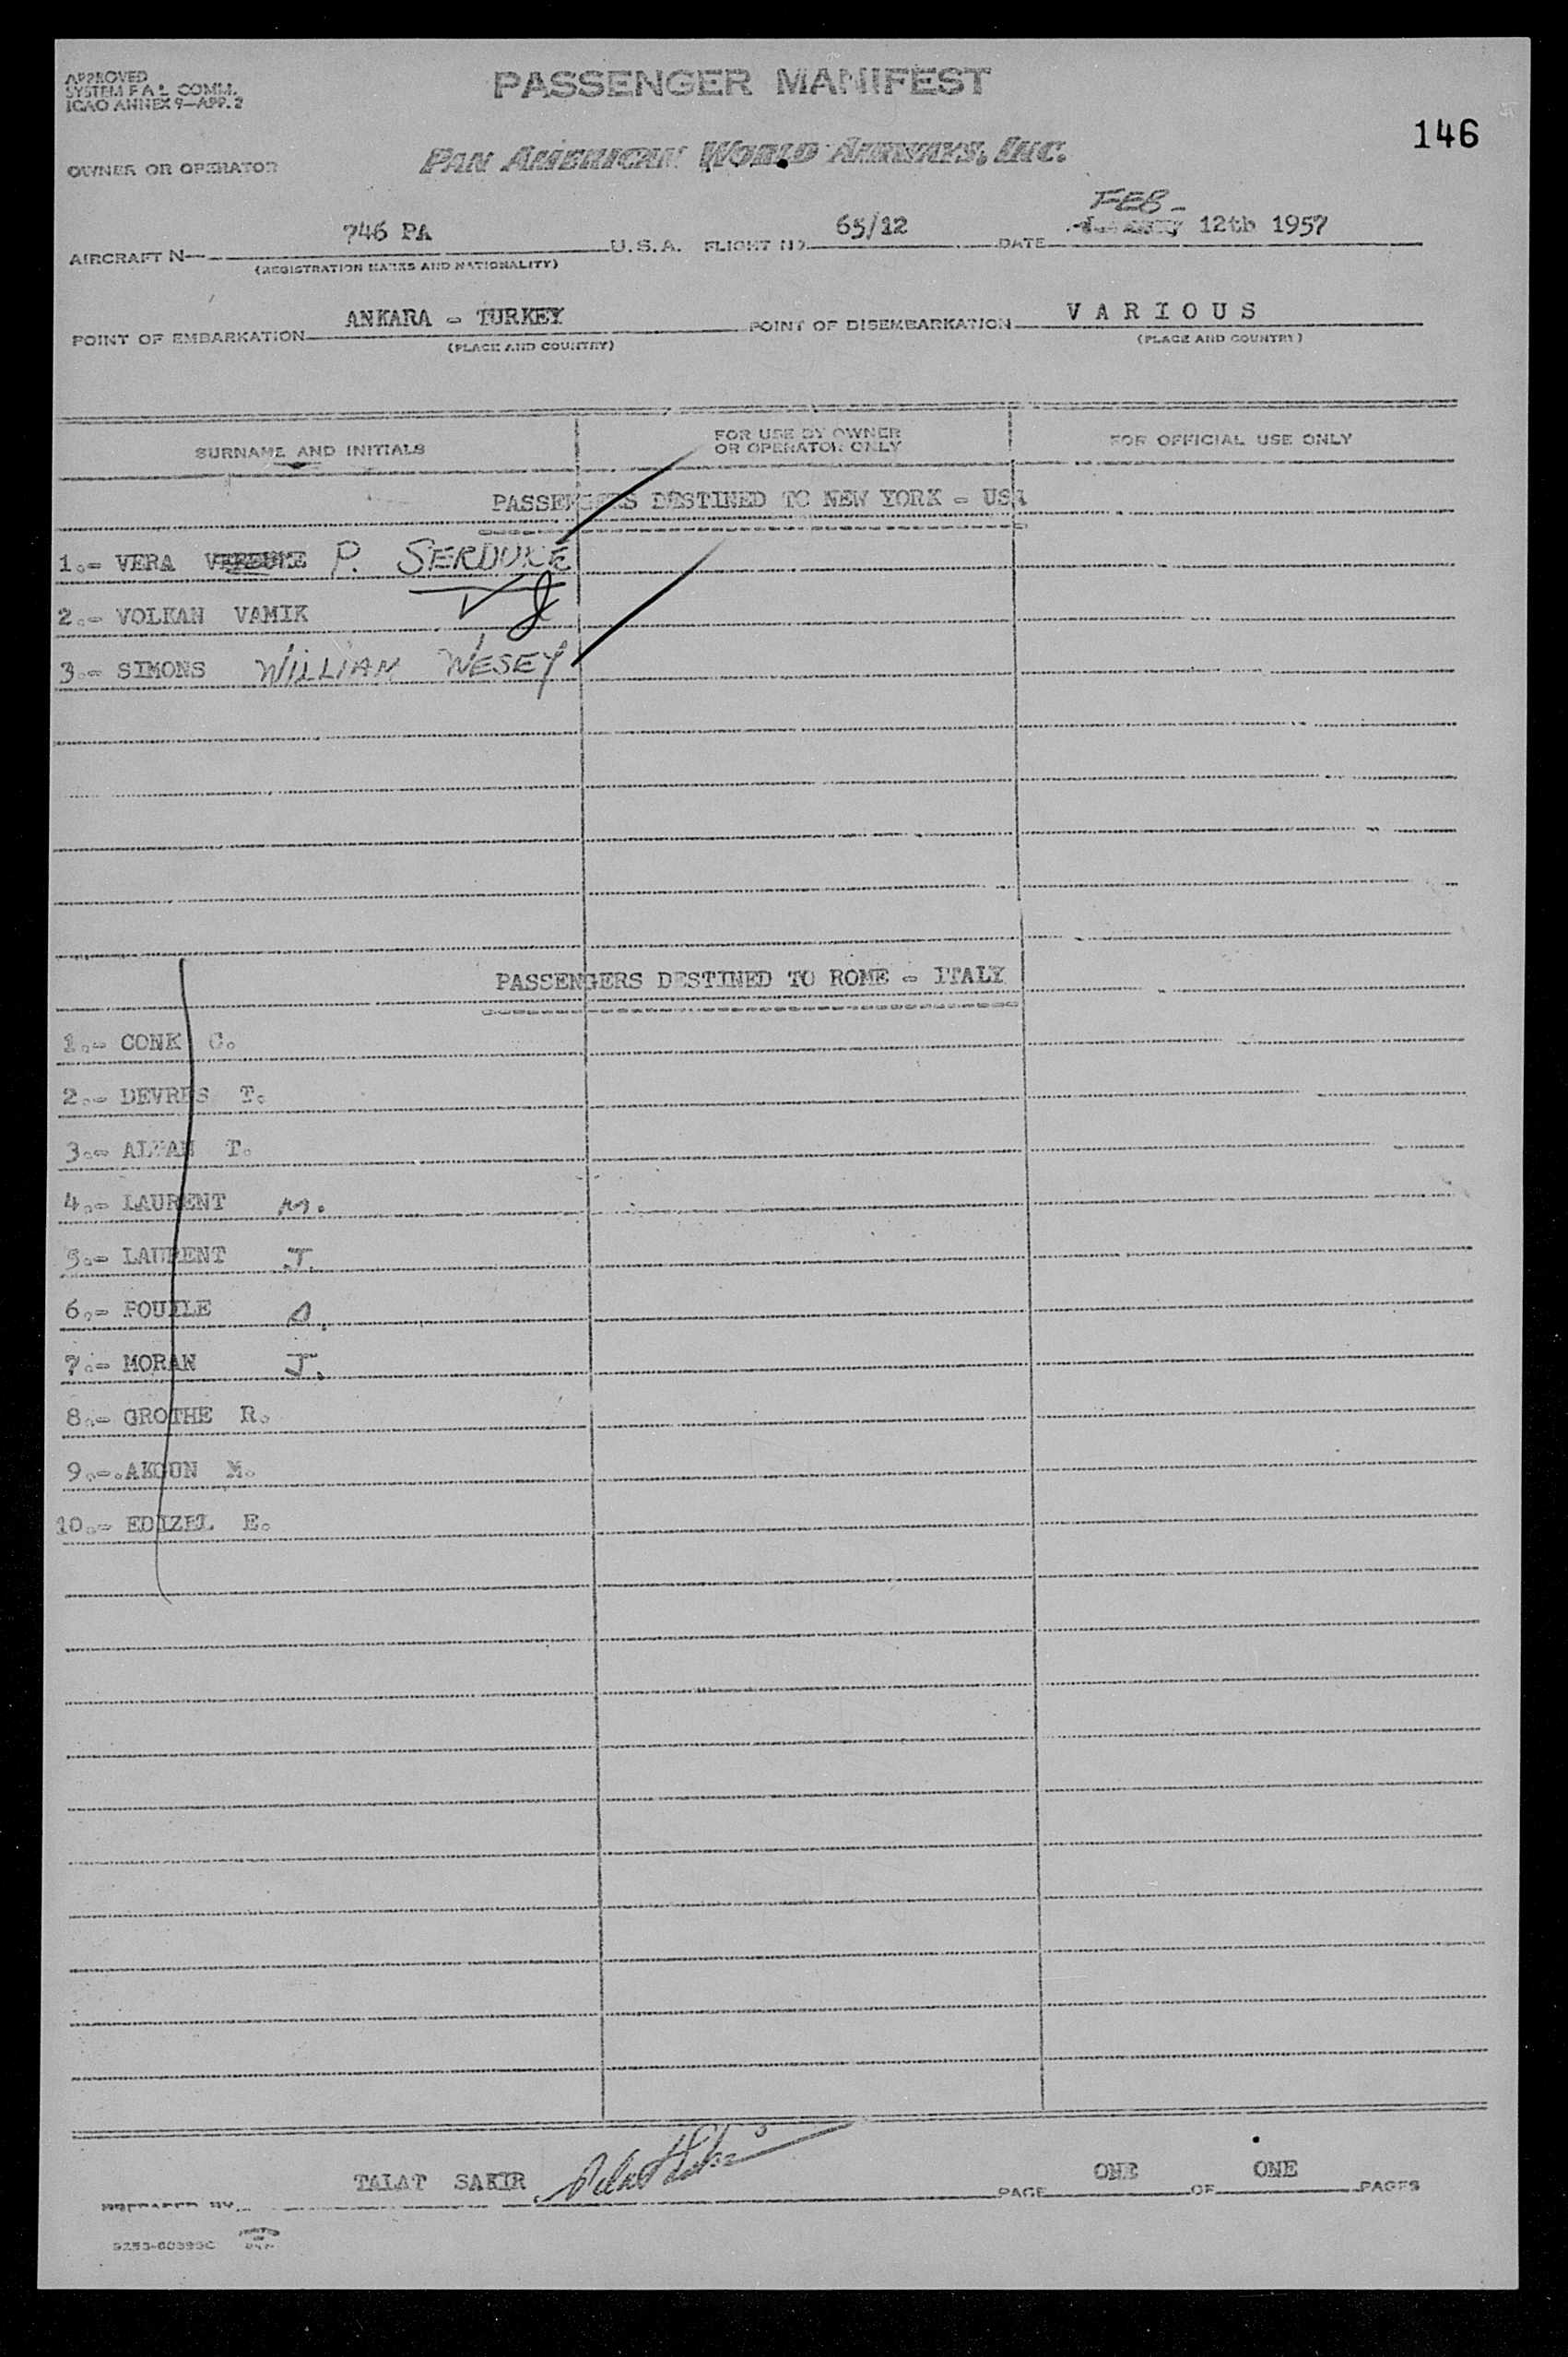 APPROVED
SYSTEM F A L COMM.
ICAO ANNEX 9—APP. 2
PASSENGER MANIFEST
146
OWNER OR OPERATOR
PAN AMERICAN WORLD AIRWAYS, INC.
FEB-
AIRCRAFT N— 746 PA U.S.A. FLIGHT NO. 65/12 DATE 12th 1957
(REGISTRATION MARKS AND NATIONALITY)
POINT OF EMBARKATION ANKARA - TURKEY POINT OF DISEMBARKATION VARIOUS
(PLACE AND COUNTRY) (PLACE AND COUNTRY)
SURNAME AND INITIALS FOR USE BY OWNER OR OPERATOR ONLY FOR OFFICIAL USE ONLY
PASSENGERS DESTINED TO NEW YORK - USA
1.- VERA P. SERDUKE
2.- VOLKAN VAMIK
3.- SIMONS WILLIAN WESEY
PASSENGERS DESTINED TO ROME - ITALY
1.- CONK C.
2.- DEVRES T.
3.- T.
4.- LAURENT M.
5.- LAURENT J.
6.-
7.- MORAN J.
8.- GROTHE R.
9.- AKGUN M.
10.- EDIZEL E.
PREPARED BY TALAT SAKIR PAGE ONE OF ONE PAGES